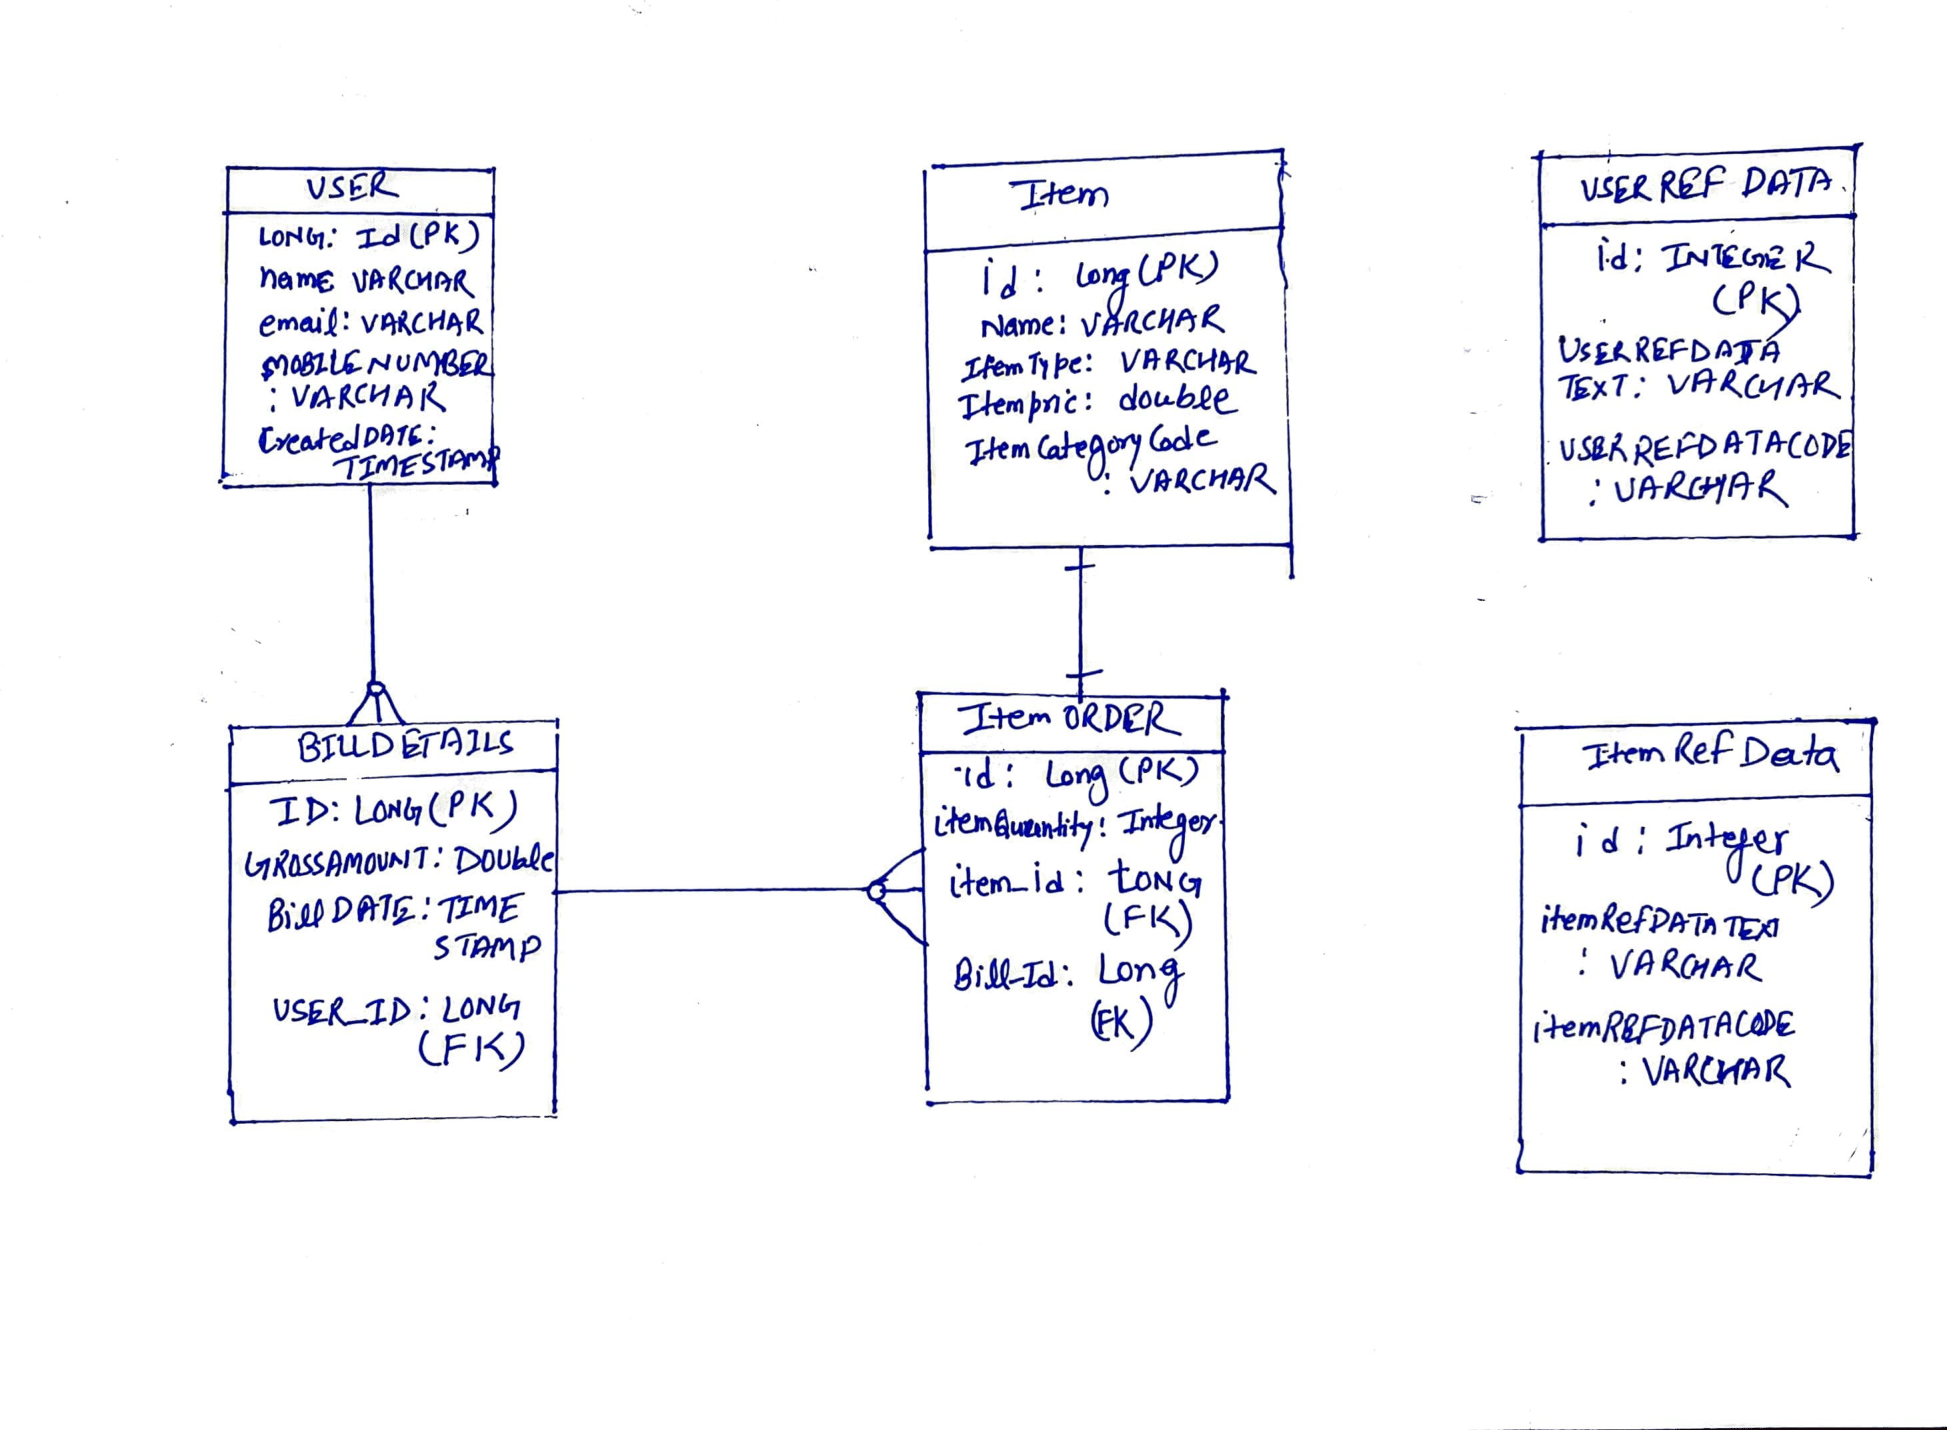 USER
LONG: Id (PK)
name VARCHAR
email: VARCHAR
MOBILENUMBER
: VARCHAR
CreatedDATE:
TIMESTAMP
Item
id: Long (PK)
Name: VARCHAR
ItemType: VARCHAR
Itempric: double
ItemCategoryCode
: VARCHAR
USERREF DATA
id: INTEGER
(PK)
USERREFDATA
TEXT: VARCHAR
USERREFDATACODE
: VARCHAR
BILLDETAILS
ID: LONG (PK)
GROSSAMOUNT: DOUble
BillDATE: TIME
STAMP
USER_ID: LONG
(FK)
Item ORDER
id: Long (PK)
itemQuantity: Integer
item_id: LONG
(FK)
Bill_Id: Long
(FK)
ItemRef Data
id: Integer
(PK)
itemRefDATATEXT
: VARCHAR
itemREFDATACODE
: VARCHAR